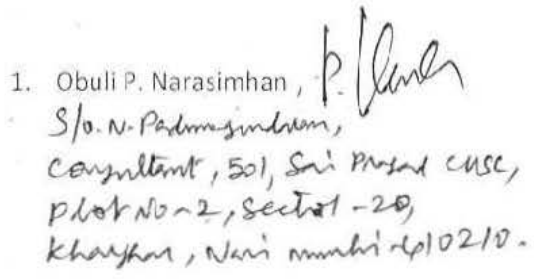 1. Obuli P. Narasimhan,
S/o. N. Padmasundaram,
Consultant, 501, Sai Prasad CHSC,
Plot No-2, Sector-20,
Kharghar, Navi Mumbai 410210.